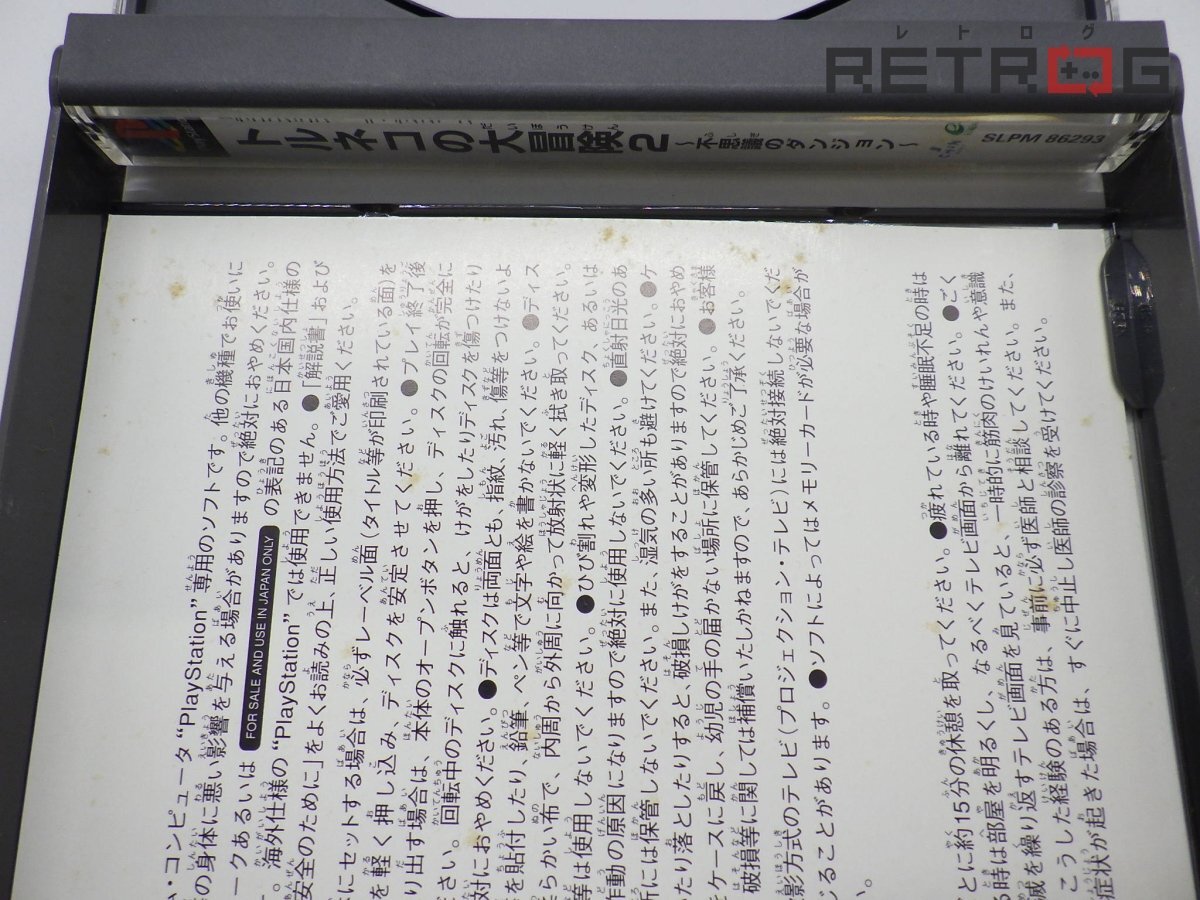 レトログ
RETROG
トルネコの大冒険2 ～不思議のダンジョン～ SLPM 86293
ム・コンピュータ“PlayStation”専用のソフトです。他の機種でお使いに
の身体に悪い影響を与える場合がありますので絶対におやめください。
ークあるいは FOR SALE AND USE IN JAPAN ONLY の表記のある日本国内仕様の
。海外仕様の“PlayStation”では使用できません。●「解説書」および
安全のために」をよくお読みの上、正しい使用方法でご愛用ください。
にセットする場合は、必ずレーベル面(タイトル等が印刷されている面)を
を軽く押し込み、ディスクを安定させてください。●プレイ終了後
り出す場合は、本体のオープンボタンを押し、ディスクの回転が完全に
さい。回転中のディスクに触れると、けがをしたりディスクを傷つけたり
対におやめください。●ディスクは両面とも、指紋、汚れ、傷等をつけないよ
を貼付したり、鉛筆、ペン等で文字や絵を書かないでください。●ディス
らかい布で、内周から外周に向かって放射状に軽く拭き取ってください。
等は使用しないでください。●ひび割れや変形したディスク、あるいは
作動の原因になりますので絶対に使用しないでください。●直射日光のあ
所には保管しないでください。また、湿気の多い所も避けてください。●ケ
たり落としたりすると、破損しけがをすることがありますので絶対におやめ
ケースに戻し、幼児の手の届かない場所に保管してください。●お客様
破損等に関しては補償いたしかねますので、あらかじめご了承ください。
影方式のテレビ(プロジェクション・テレビ)には絶対接続しないでくだ
じることがあります。●ソフトによってはメモリーカードが必要な場合が
。
とに約15分の休憩を取ってください。●疲れている時や睡眠不足の時は
る時は部屋を明るくし、なるべくテレビ画面から離れてください。●ごく
滅を繰り返すテレビ画面を見ていると、一時的に筋肉のけいれんや意識
こうした経験のある方は、事前に必ず医師と相談してください。また、
症状が起きた場合は、すぐに中止し医師の診察を受けてください。